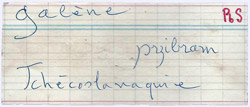 galène
RS
przibram
Tchécoslovaquie